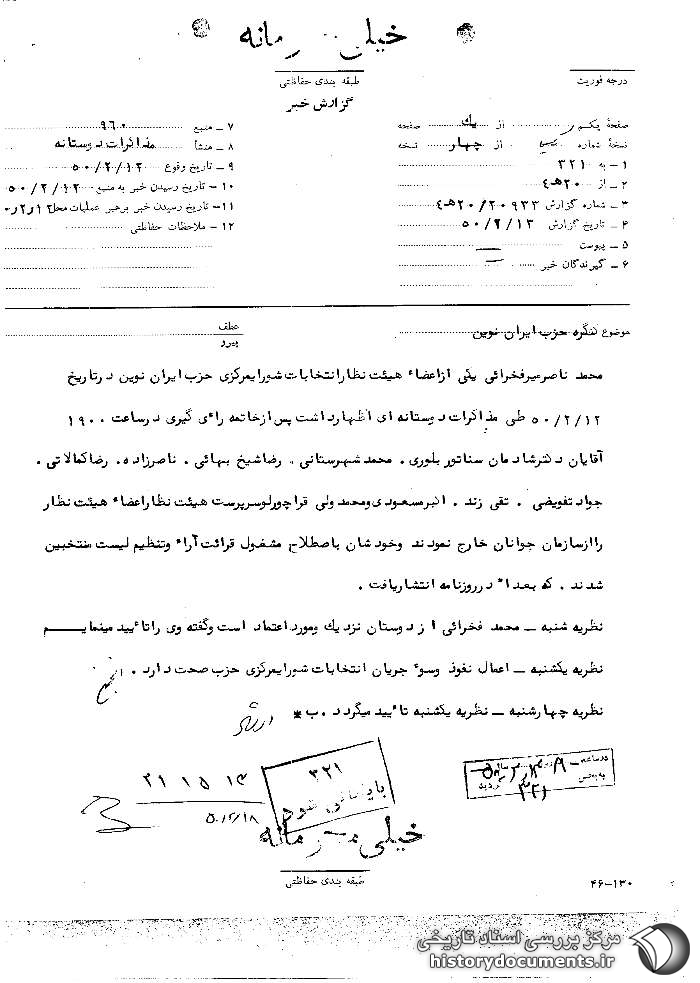 خیلی محرمانه
طبقه بندی حفاظتی
درجه فوریت
گزارش خبر
صفحهٔ یکم از یك صفحه
نسخهٔ شماره از چهار نسخه
۱ ـ به ۳۲۱
۲ ـ از ۲۰هـ۴
۳ ـ شماره گزارش ۲۰/۲۰۹۳۳هـ۴
۴ ـ تاریخ گزارش ۵۰/۲/۱۳
۵ ـ پیوست
۶ ـ گیرندگان خبر
۷ ـ منبع ۹۶۰
۸ ـ منشأ مذاکرات دوستانه
۹ ـ تاریخ وقوع ۵۰/۲/۱۲
۱۰ ـ تاریخ رسیدن خبر به منبع ۵۰/۲/۱۲
۱۱ ـ تاریخ رسیدن خبر برهبر عملیات محل
۱۲ ـ ملاحظات حفاظتی
موضوع کنگره حزب ایران نوین
عطف
پیرو
محمد ناصرمیرفخرائی یکی ازاعضاء هیئت نظارانتخابات شورایمرکزی حزب ایران نوین درتاریخ
۵۰/۲/۱۲ طی مذاکرات دوستانه ای اظهارداشت پس ازخاتمه رای گیری درساعت ۱۹۰۰
آقایان دکترشادمان سناتور بلوری . محمد شهرستانی . رضاشیخ بهائی . ناصرزاده . رضاکمالاتی .
جواد تفویضی . تقی زند . اکبرمسعودی ومحمد ولی قراچورلوسرپرست هیئت نظاراعضاء هیئت نظار
راازسازمان جوانان خارج نمودند وخودشان باصطلاح مشغول قرائت آراء وتنظیم لیست منتخبین
شدند . که بعداً درروزنامه انتشاریافت .
نظریه شنبه ـ محمد فخرائی از دوستان نزدیك ومورد اعتماد است وگفته وی راتائید مینمایـــم
نظریه یکشنبه ـ اعمال نفوذ وسوء جریان انتخابات شورایمرکزی حزب صحت دارد .
نظریه چهارشنبه ـ نظریه یکشنبه تائید میگردد . ب *
۳۲۱
بایگانی شود
۲۱ ۱۵ ۱۴
۵۰/۲/۱۸
در ساعت
به بخش ۳۲۱ گردید
خیلی محرمانه
طبقه بندی حفاظتی
۴۶-۱۳۰
مرکز بررسی اسناد تاریخی
historydocuments.ir